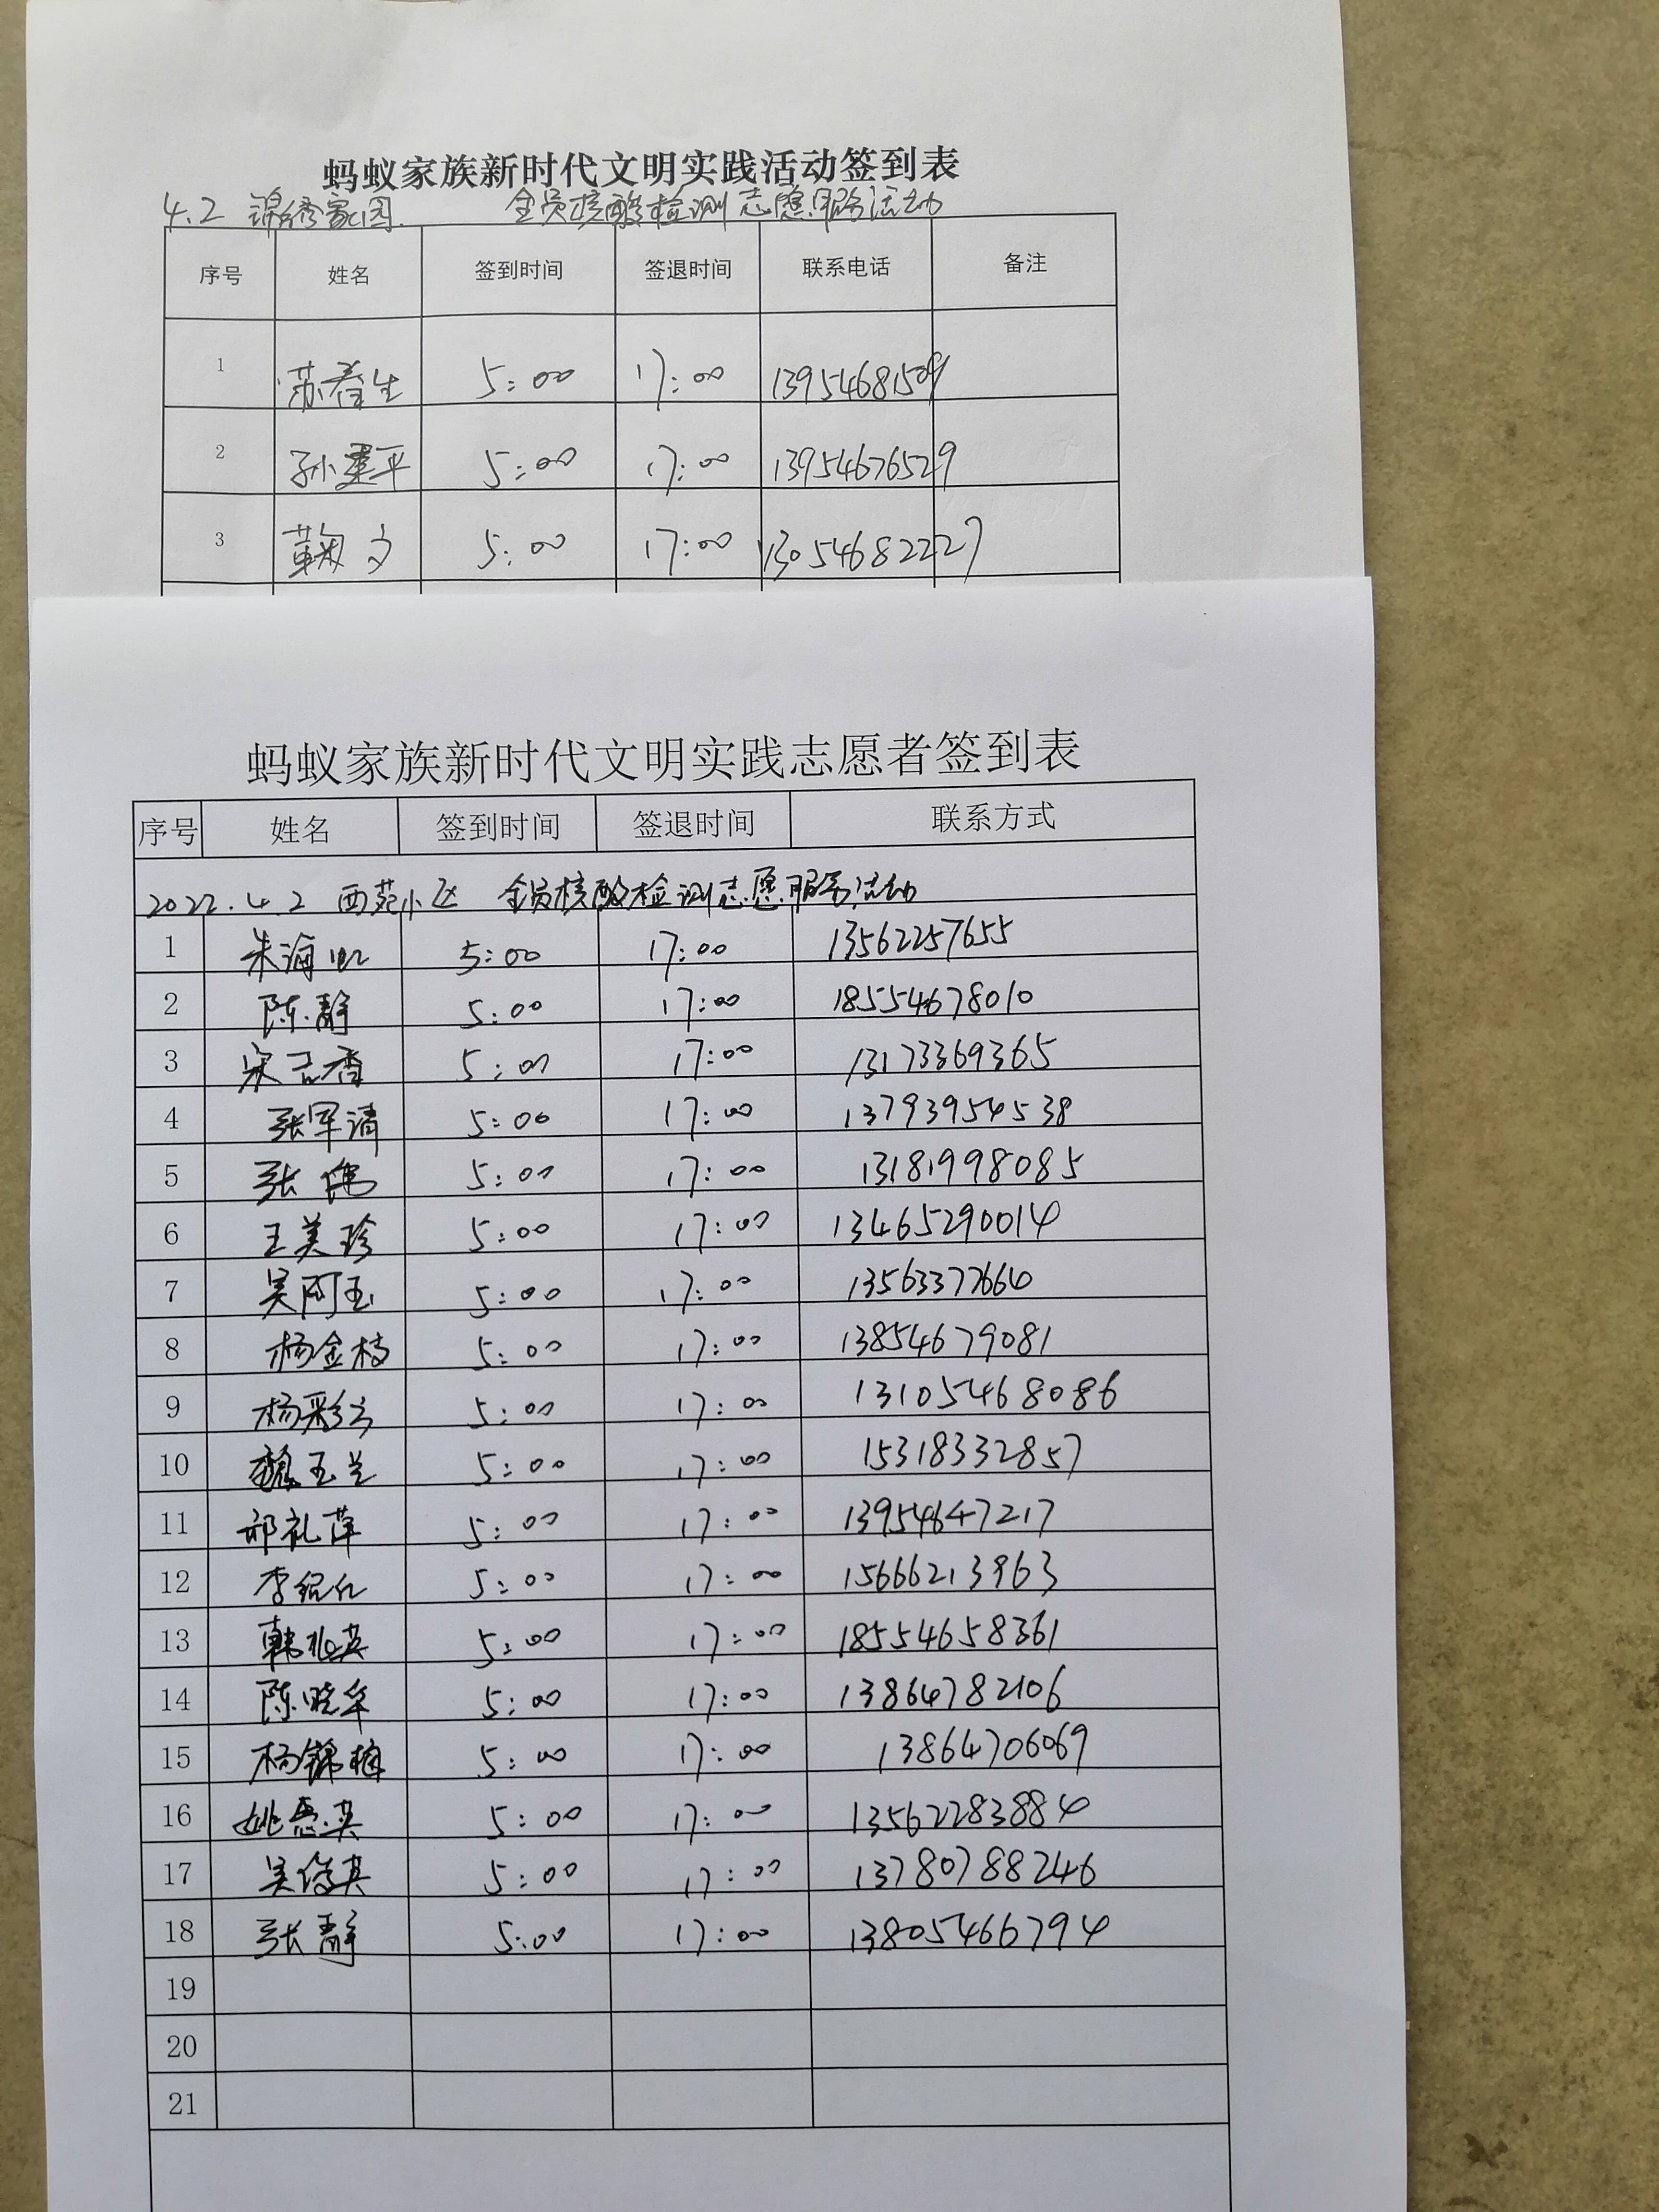 蚂蚁家族新时代文明实践活动签到表
4.2 锦绣家园. 全员核酸检测志愿服务活动
序号 姓名 签到时间 签退时间 联系电话 备注
1 苏春生 5:00 17:00
2 孙建平 5:00 17:00 13954676529
3 鞠文 5:00 17:00 13054682227
蚂蚁家族新时代文明实践志愿者签到表
序号 姓名 签到时间 签退时间 联系方式
2022.4.2 西苑小区 全员核酸检测志愿服务活动
1 朱海虹 5:00 17:00 13562257655
2 陈静 5:00 17:00 18554678010
3 宋志香 5:00 17:00 13173369365
4 张军清 5:00 17:00 13793954538
5 张伟 5:00 17:00 13181998085
6 王美珍 5:00 17:00 13465290014
7 吴阿玉 5:00 17:00 13563377664
8 杨金枝 5:00 17:00 13854679081
9 杨彩云 5:00 17:00 13105468086
10 魏玉兰 5:00 17:00 15318332857
11 邱礼萍 5:00 17:00 13954647217
12 5:00 17:00 15666213963
13 韩兆英 5:00 17:00 18554658361
14 陈晓华 5:00 17:00 13864782106
15 杨锦梅 5:00 17:00 13864706069
16 姚惠英 5:00 17:00 13562283884
17 吴俊英 5:00 17:00 13780788246
18 张静 5:00 17:00 13805466794
19
20
21